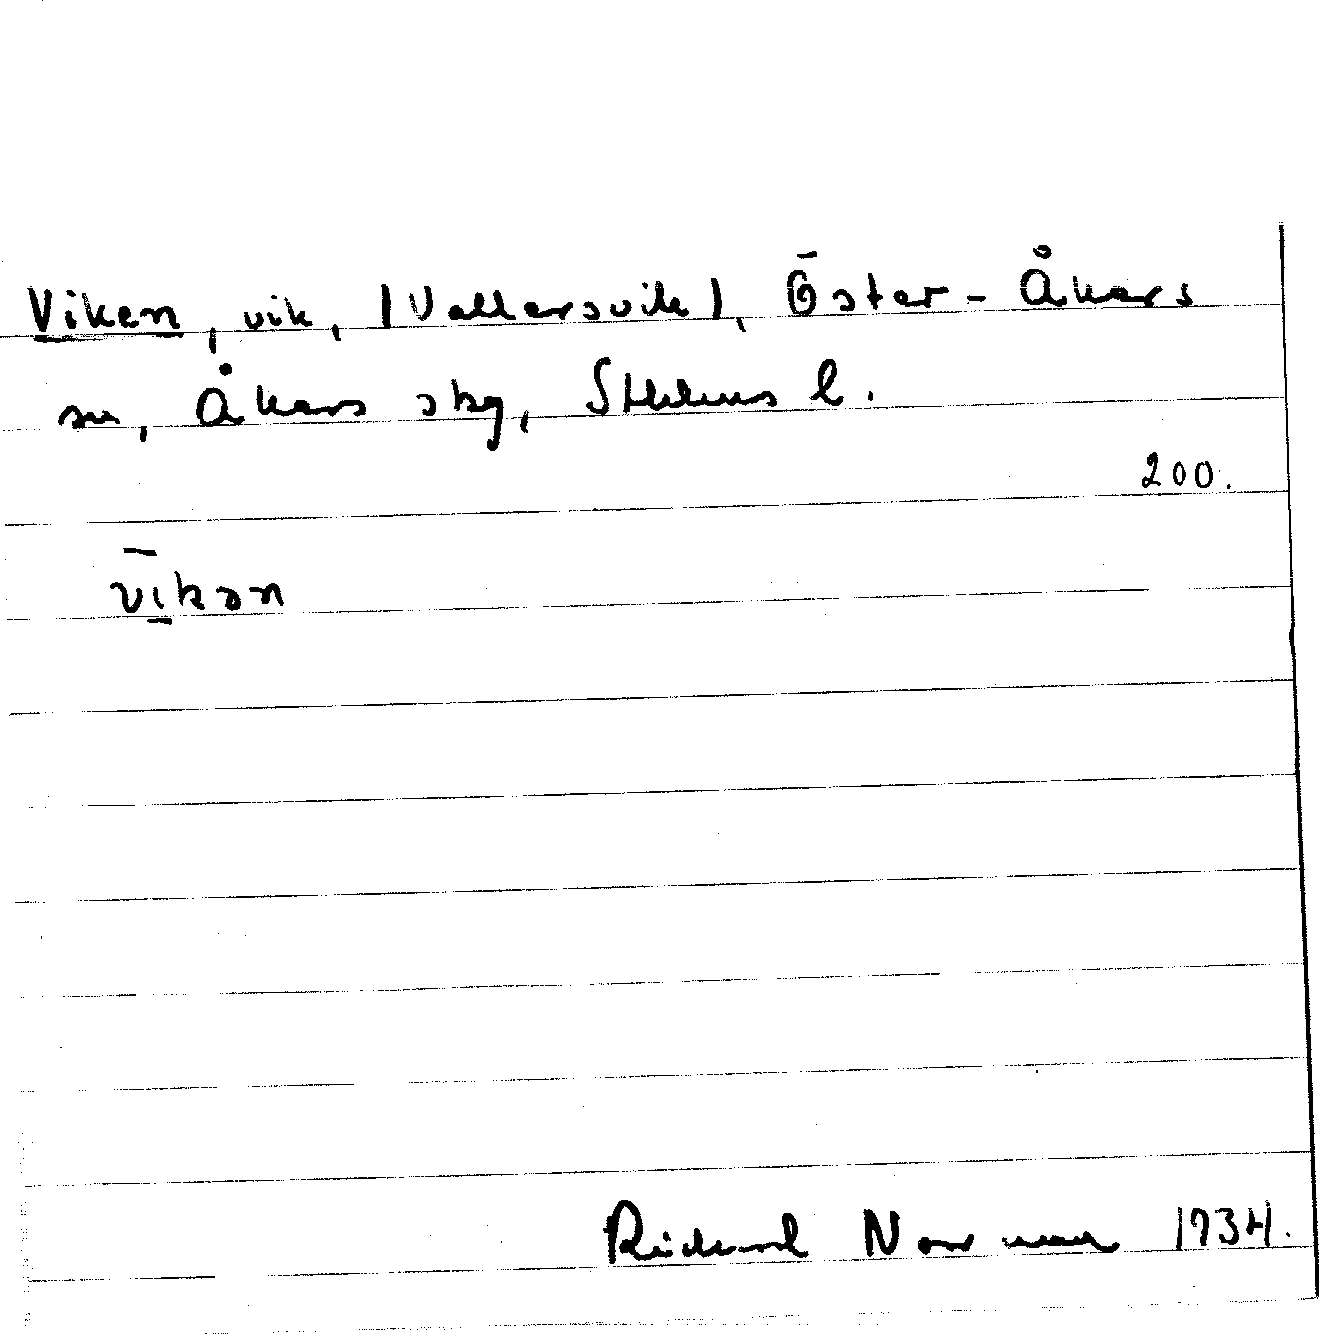 Viken, vik, (Vallersvik), Öster-Åkers
sn, Åkers skg, Sthlms l.
200.
vī̠kən
Rickard Norrman 1934.